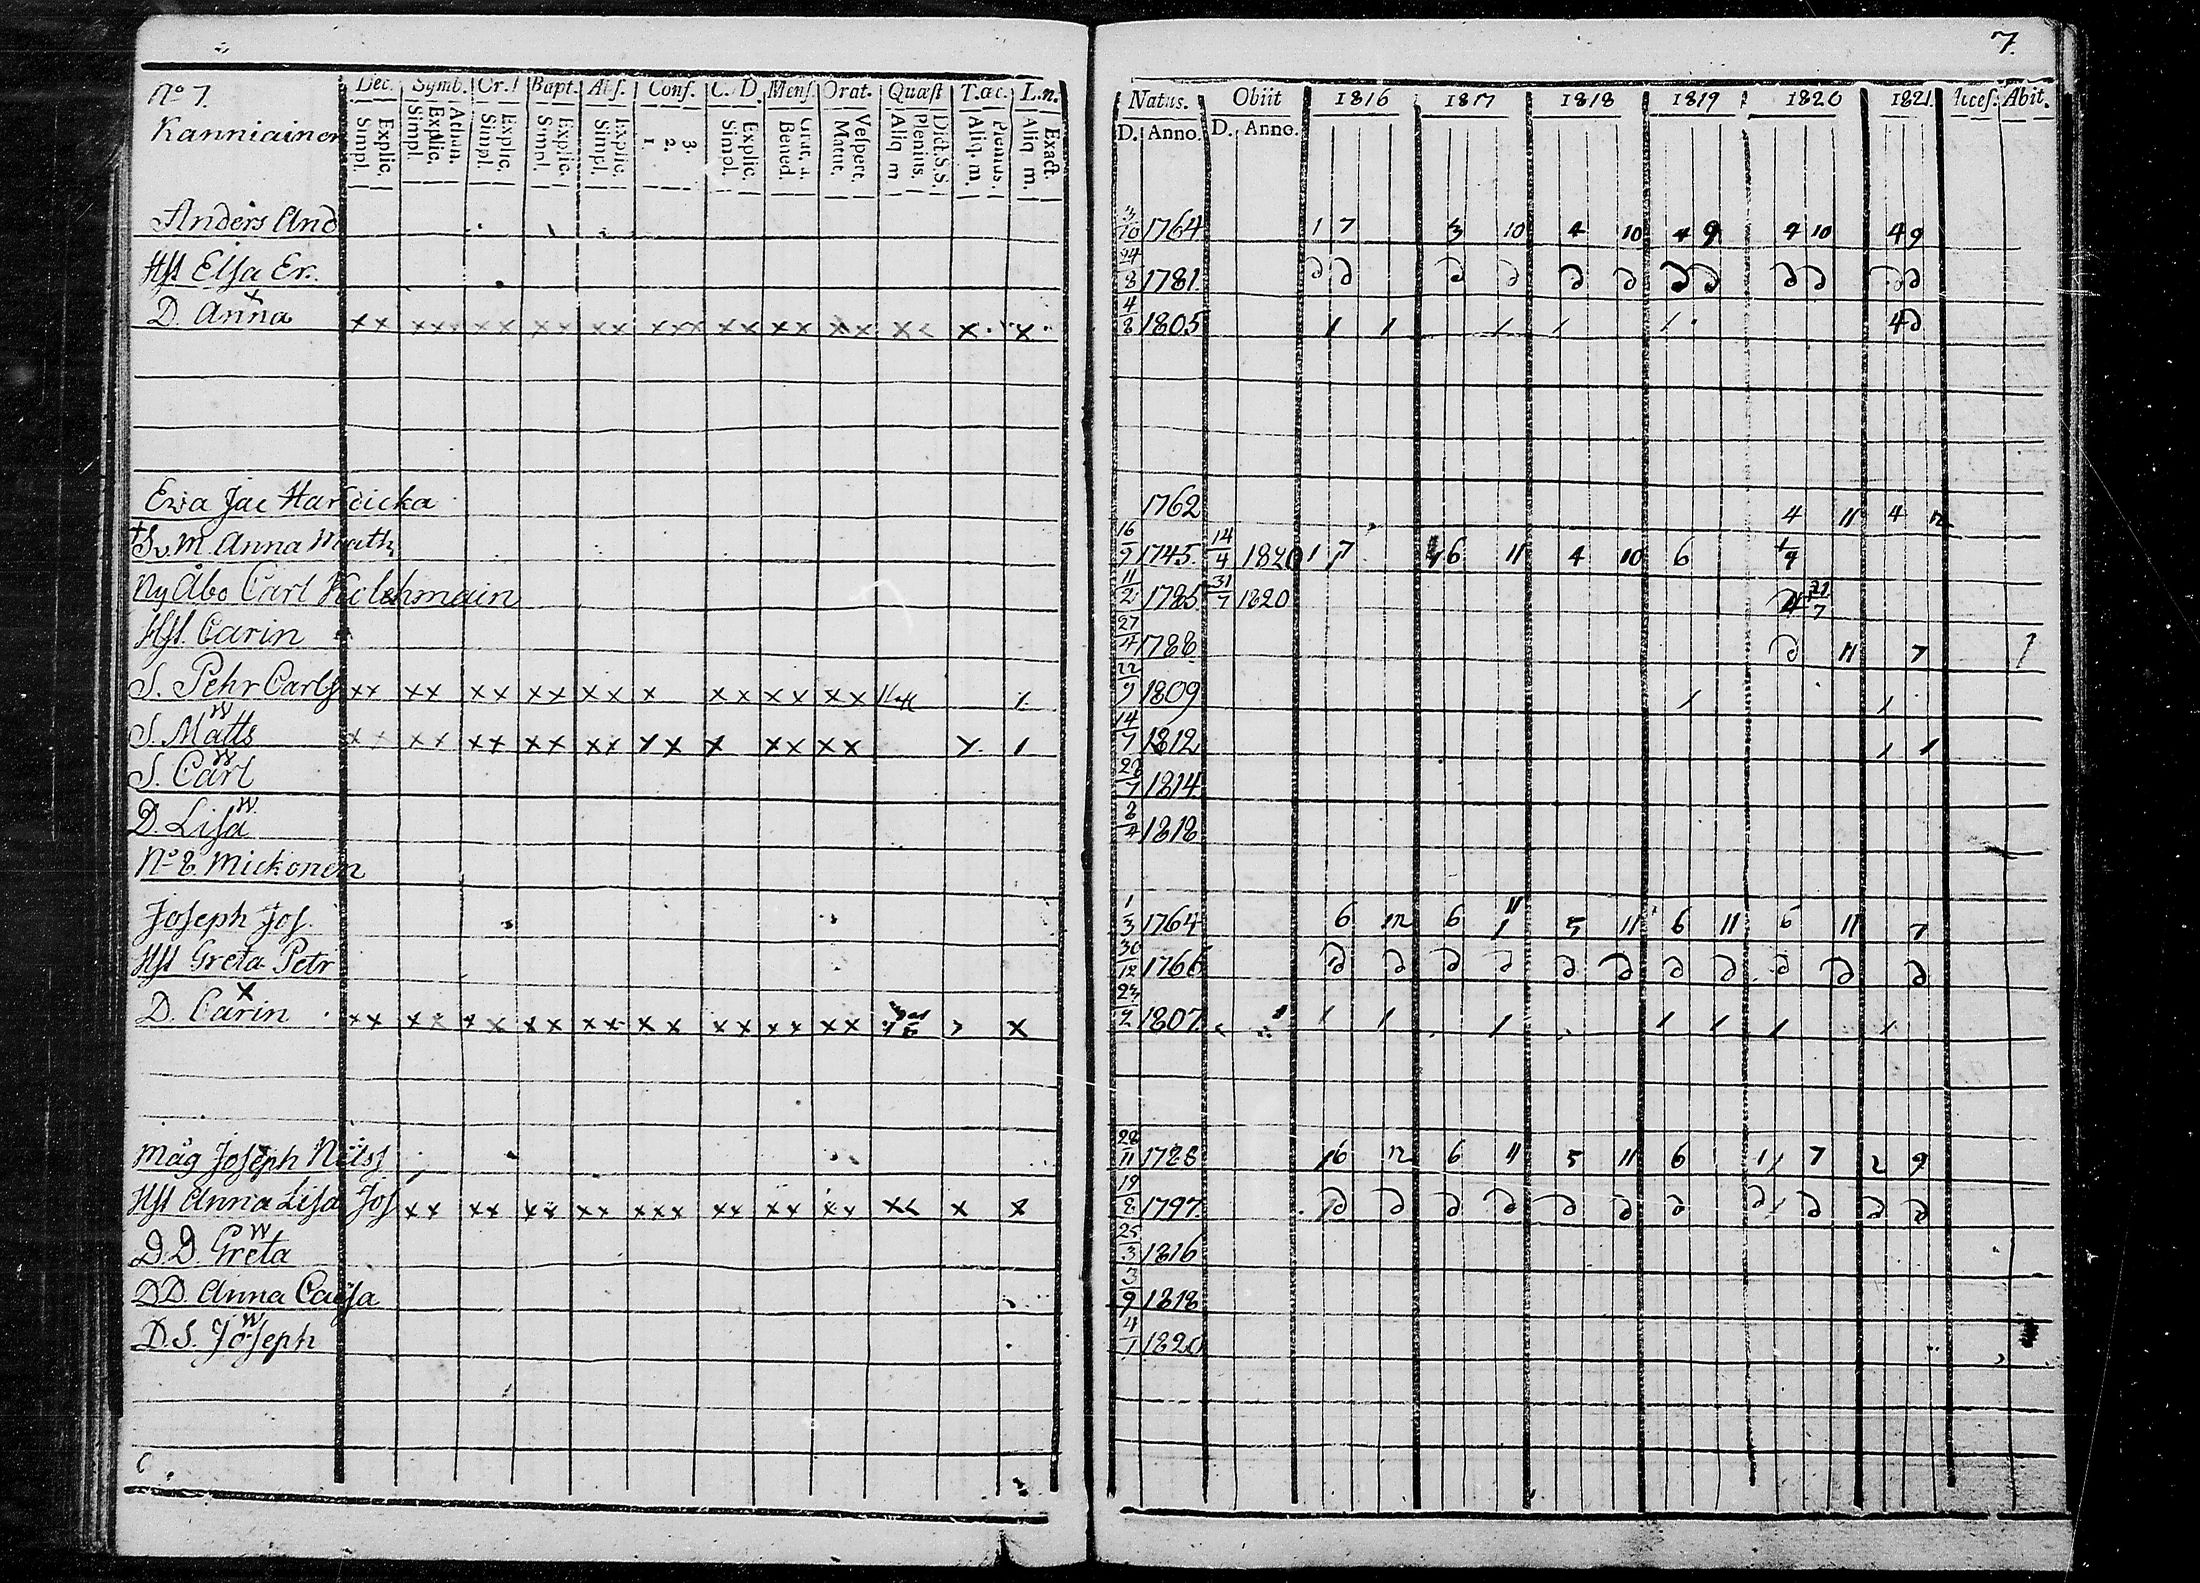 7.
No 7.
Kanniainen
Dec. Symb. Or. Bapt. Abs. Conf. C. D. Mens. Orat. Quæst T. æc. L. n.
Explic. Simpl. Athan. Explic. Simpl. Explic. Simpl. Explic. Simpl. Explic. Simpl. 3. 2. 1 Explic. Simpl. Bened Vespert. Matut. Dict. S.S. Plenius. Aliq m Plenius. Aliq. m. Exact. Aliq m.
Natus. Obiit 1816 1817 1818 1819 1820 1821 Acces. Abit.
D. Anno. D. Anno.
Anders And 3/10 1764 1 7 3 10 4 10 4 9 9 10 4 9
Hst Elsa Er. 24/8 1781 D D D D D D D D D D D D
D. Anna x x x x x x x x x x x x x x x x x x x x x x x x x 4/8 1805 1 1 1 1 1 4 D
Ewa Jac Hardicka 1762 4 11 4 12
+ Sv. M. Anna Math 16/9 1745 14/4 1820 1 7 6 11 4 10 6 1/9
Ny Åbo Carl Kolehmain 11/2 1785 31/7 1820
Hst. Carin 27/4 1788 D 11 7 1
S. Pehr Carls x x x x x x x x x x x x x x x x x 1 22/9 1809 1 1
S. Matts w x x x x x x x x x x x x x x x x x x 1 14/7 1812 1 1
S. Carl w 1814
D. Lisa w 8/4 1818
No 8. Mickonen
Joseph Jos. 1/3 1764 6 12 6 11 5 11 6 11 6 11 7
Hst Greta Petr 30/12 1766 D D D D D D D D D D D
D. Carin x x x x x x x x x x x x x x x x x x x x x 23/2 1807 1 1 1 1 1 1 1
Måg Joseph Nilss 28/11 1788 6 12 6 11 5 11 6 11 7 2 9
Hst Anna Lisa Jos x x x x x x x x x x x x x x x x x x x x x 19/8 1797 D D D D D D D D D D D
D.D. Greta w 25/3 1816
D.D. Anna Caisa 3/9 1818
D.S. Joseph w 4/1 1820